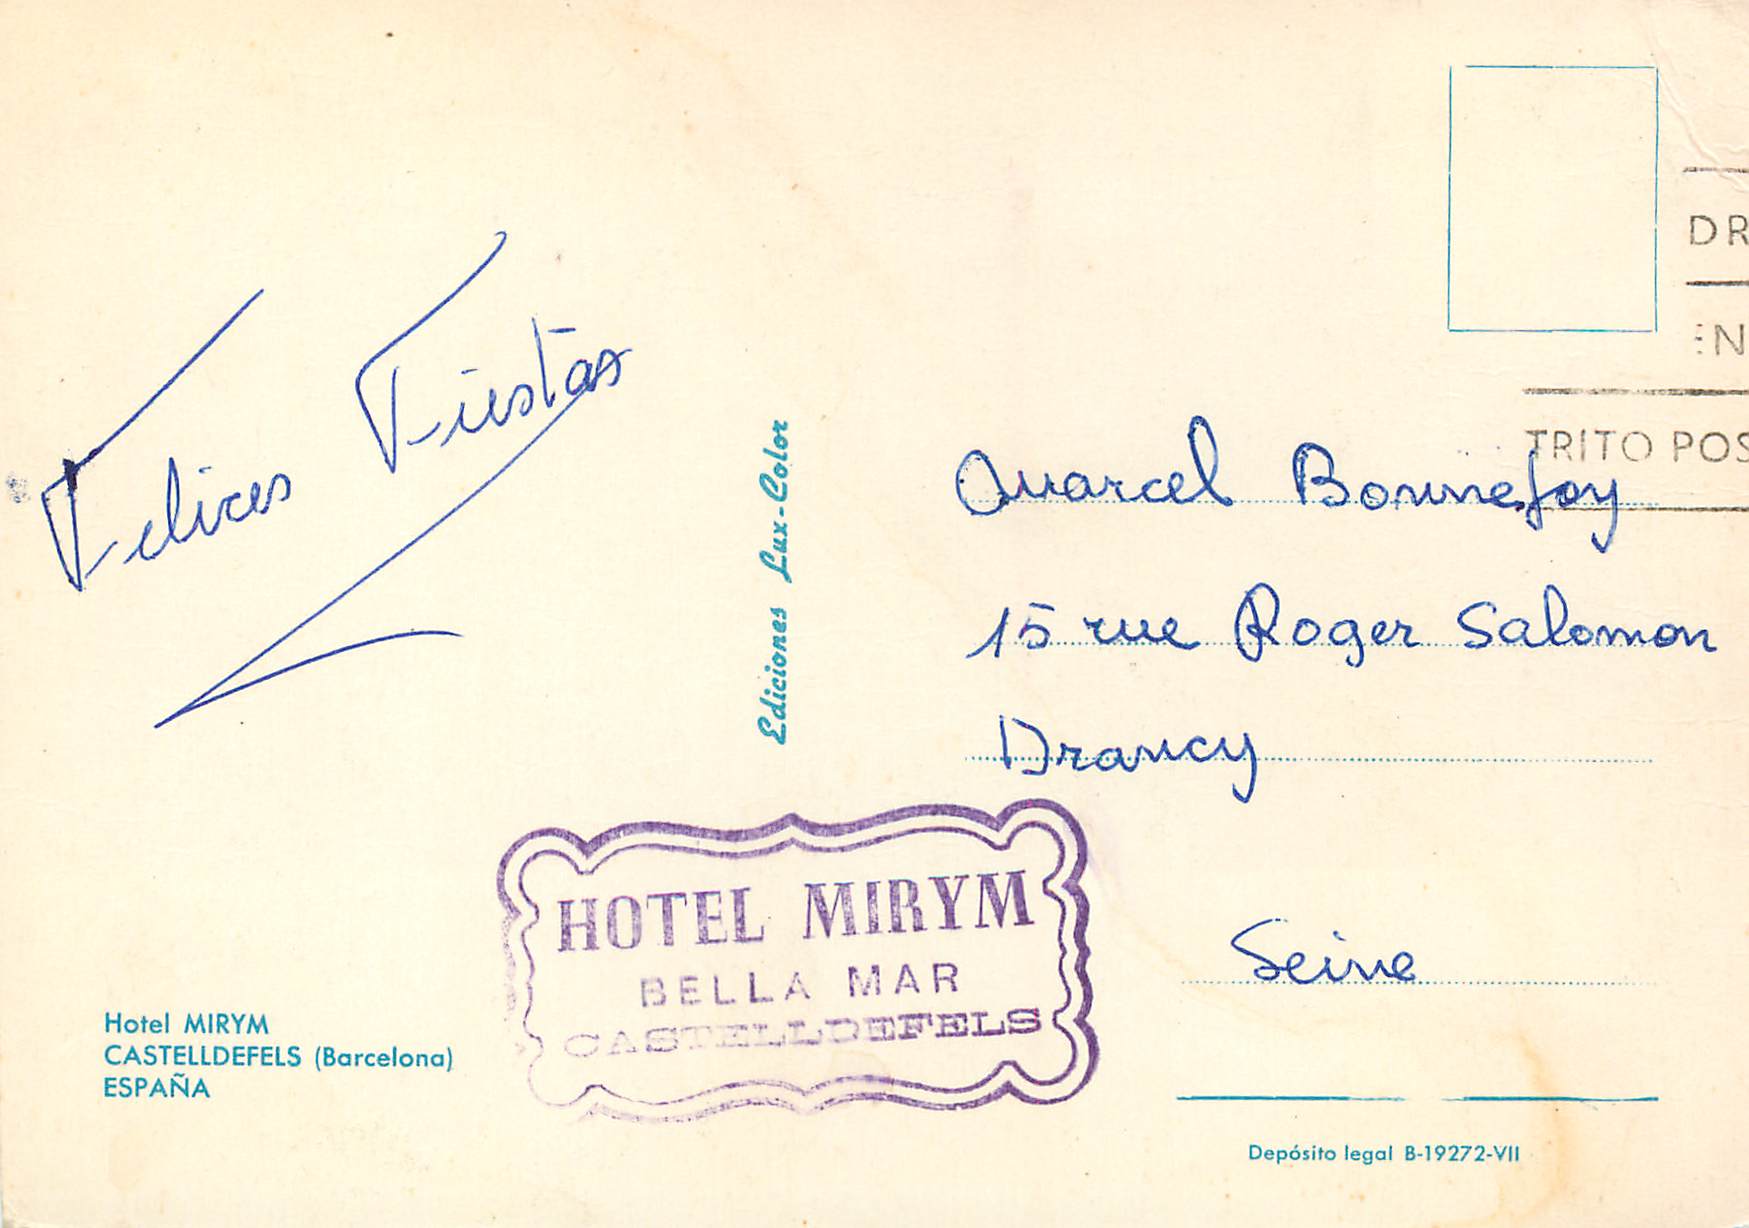 DR
EN
TRITO POS
Felices Fiestas
Ediciones Lux-Color
Marcel Bonnefoy
15 rue Roger Salomon
Drancy
Seine
HOTEL MIRYM
BELLA MAR
CASTELLDEFELS
Hotel MIRYM
CASTELLDEFELS (Barcelona)
ESPAÑA
Depósito legal B-19272-VII